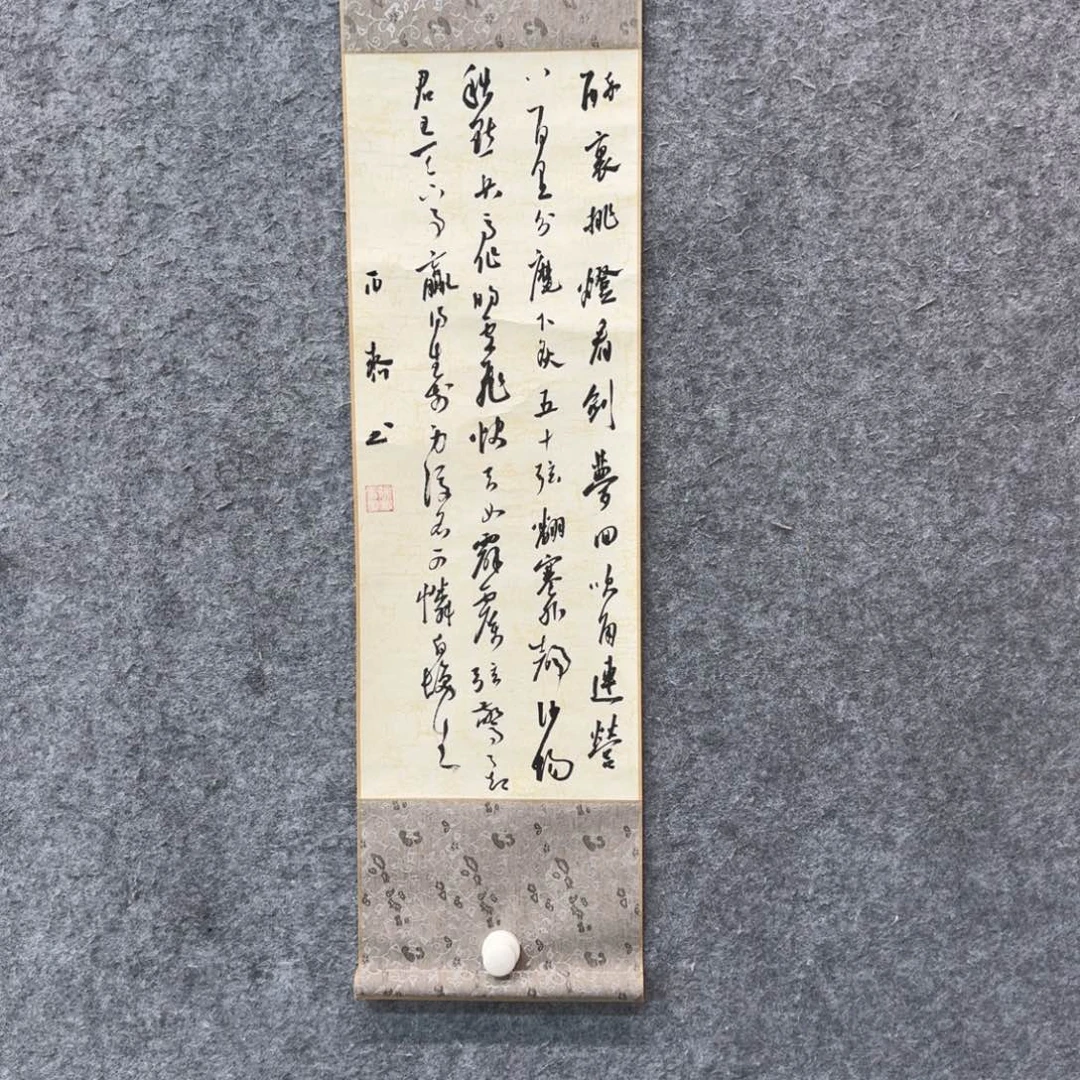 醉裏挑燈看劍夢回吹角連營
八百里分麾下炙五十弦翻塞外聲沙場
秋點兵馬作的盧飛快弓如霹靂弦驚了却
君王天下事贏得生前身後名可憐白髮生
書